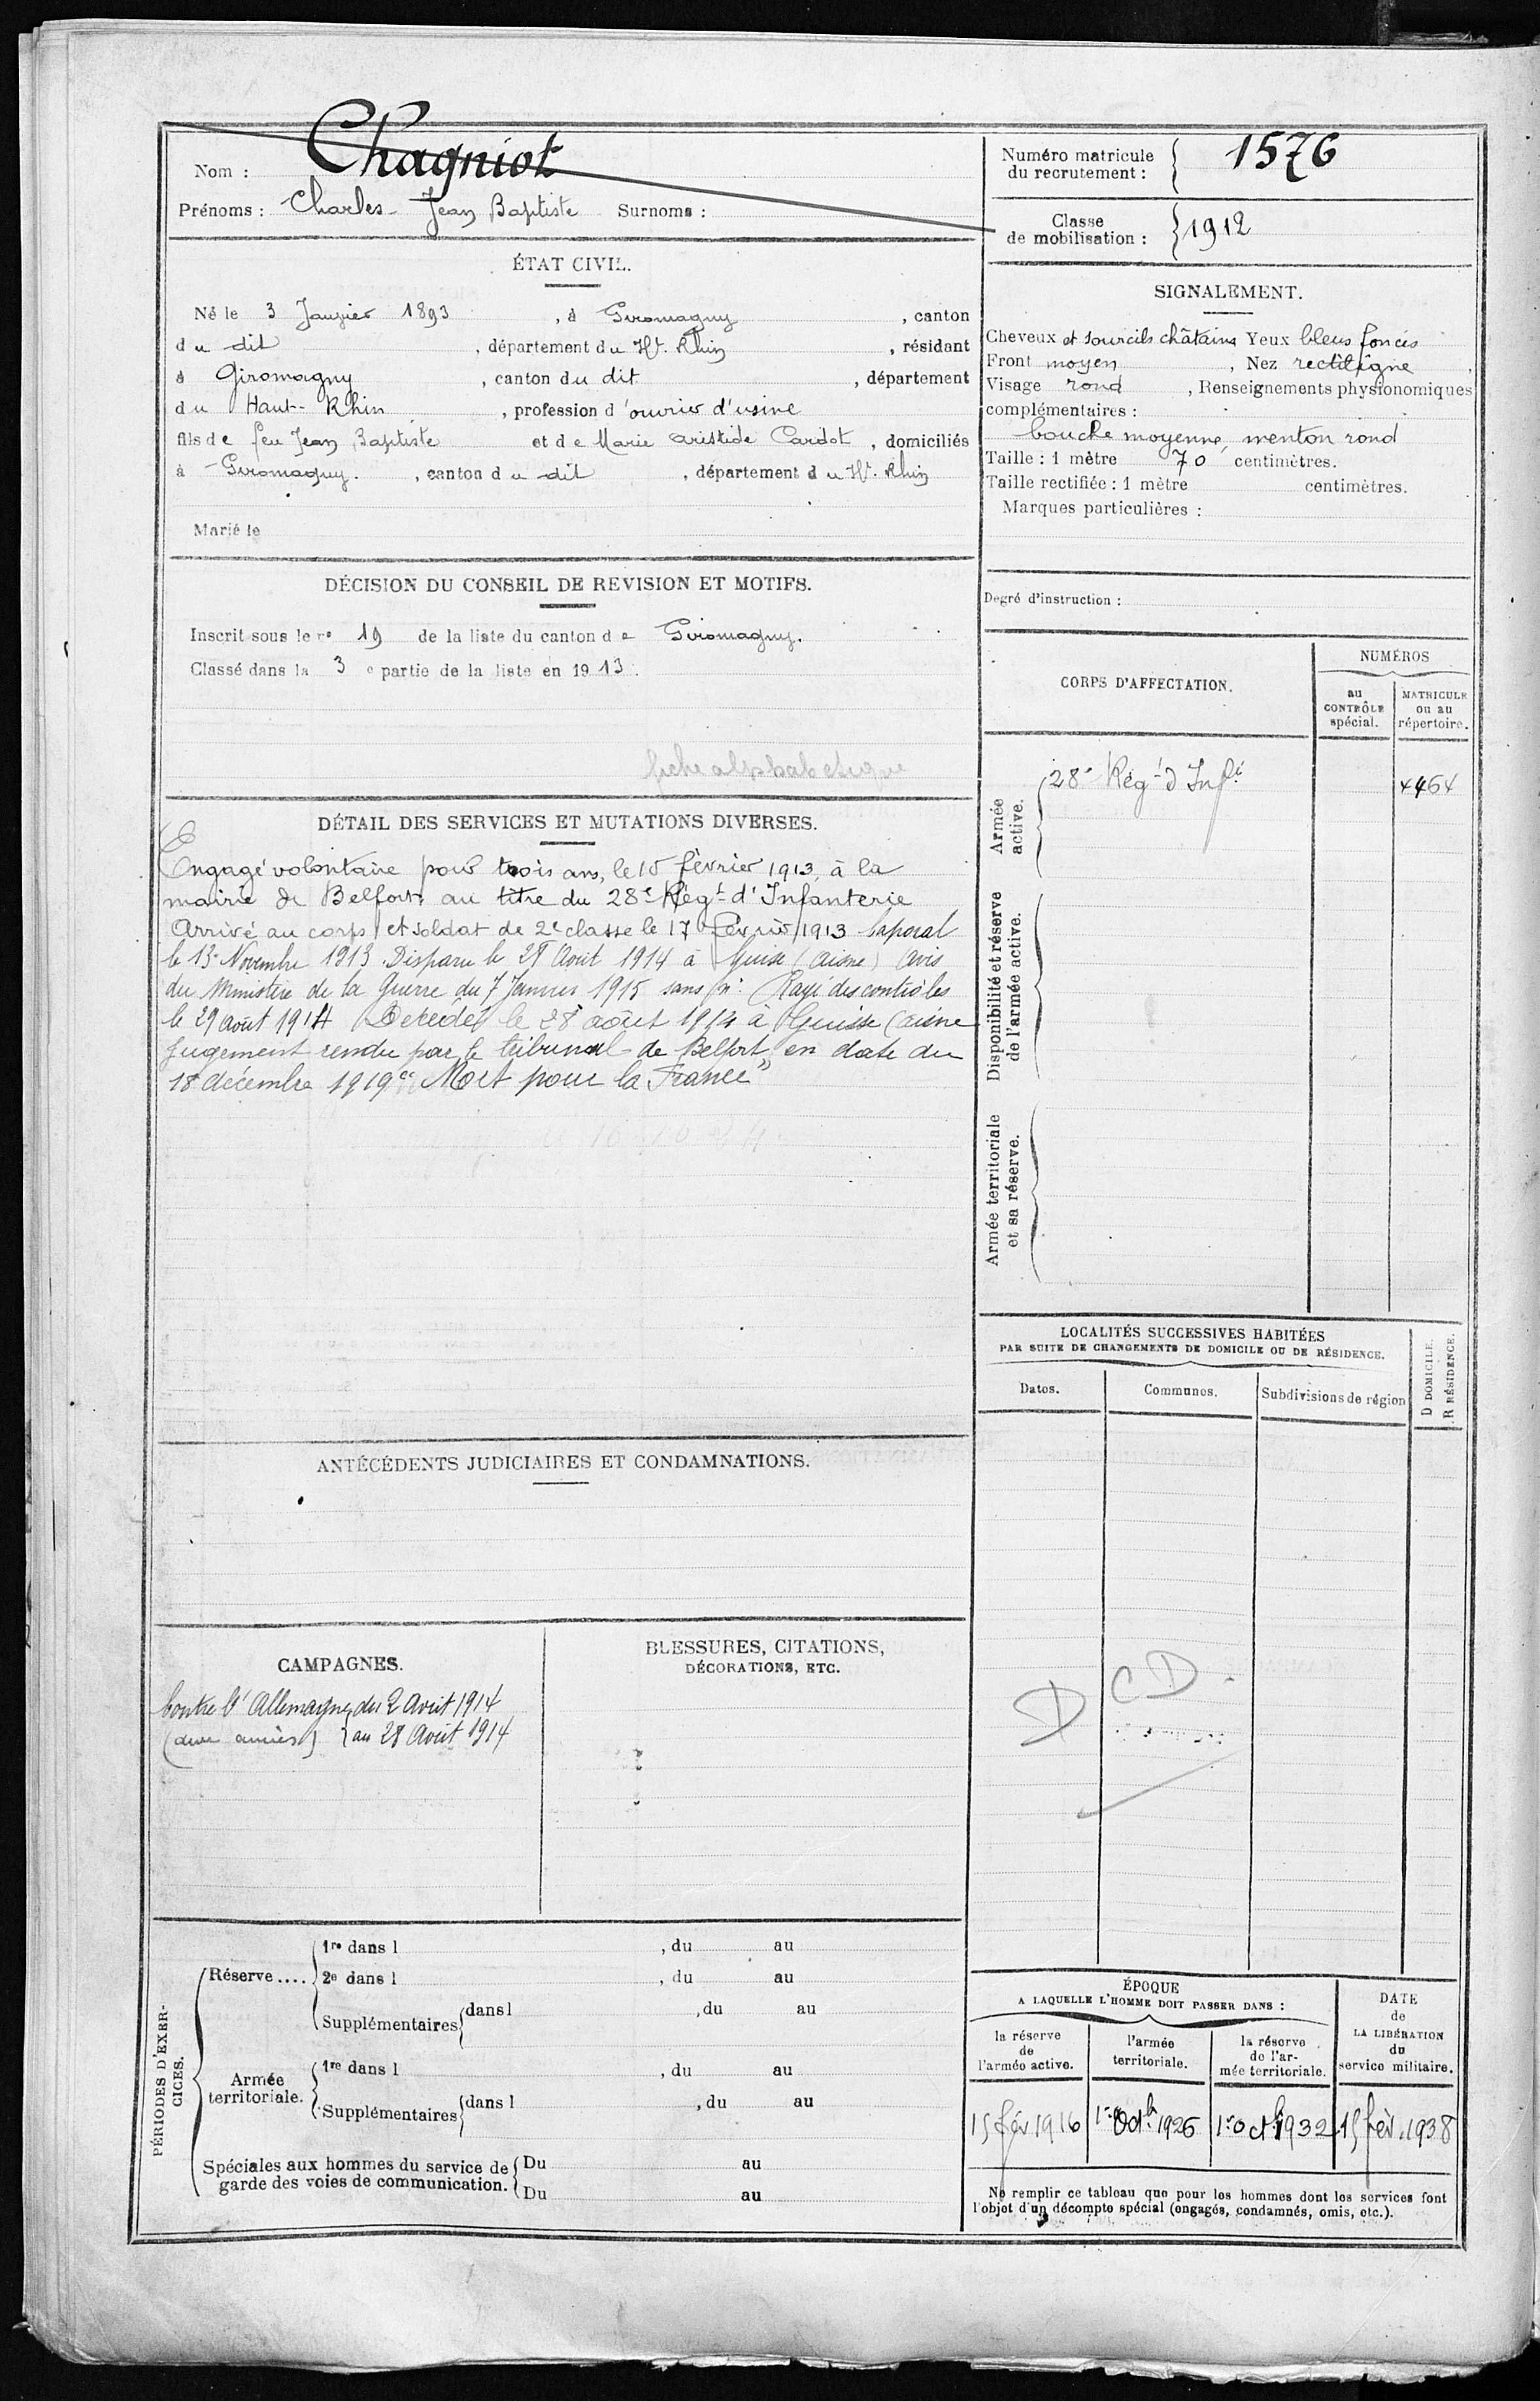 Nom : Chagniot
Prénoms : Charles Jean Baptiste Surnoms :
Numéro matricule
du recrutement : 1576
Classe
de mobilisation : 1912
ÉTAT CIVIL.
Né le 3 Janvier 1893, à Giromagny, canton
du dit, département du Ht. Rhin, résidant
à Giromagny, canton du dit, département
du Haut-Rhin, profession d'ouvrier d'usine
fils de feu Jean Baptiste et de Marie Aristide Cardot, domiciliés
à Giromagny., canton du dit, département du Ht. Rhin
Marié le
SIGNALEMENT.
Cheveux et sourcils châtains Yeux bleus foncés
Front moyen, Nez rectiligne,
Visage rond, Renseignements physionomiques
complémentaires :
bouche moyenne, menton rond
Taille : 1 mètre 70 centimètres.
Taille rectifiée : 1 mètre centimètres.
Marques particulières :
Degré d'instruction :
DÉCISION DU CONSEIL DE REVISION ET MOTIFS.
Inscrit sous le no 19 de la liste du canton de Giromagny.
Classé dans la 3e partie de la liste en 1913.
fiche alphabetique
DÉTAIL DES SERVICES ET MUTATIONS DIVERSES.
Engagé volontaire pour trois ans, le 15 février 1913, à la
mairie de Belfort au titre du 28e Régt d'Infanterie
Arrivé au corps et soldat de 2e classe le 17 février 1913 Caporal
le 13 Novembre 1913. Disparu le 28 Août 1914 à Guise (Aisne) Avis
du Ministère de la Guerre du 7 Janvier 1915 sans no. Rayé des contrôles
le 29 août 1914 Décédé le 28 août 1914 à Guisse (Aisne
Jugement rendu par le tribunal de Belfort en date du
18 décembre 1919 "Mort pour la France"
CORPS D'AFFECTATION.
NUMÉROS
au
CONTRÔLE
spécial.
MATRICULE
ou au
répertoire.
Armée
active.
28e Régt d'Infie 4464
Disponibilité et réserve
de l'armée active.
Armée territoriale
et sa réserve.
LOCALITÉS SUCCESSIVES HABITÉES
PAR SUITE DE CHANGEMENTS DE DOMICILE OU DE RÉSIDENCE.
Dates.
Communes.
Subdivisions de région
D DOMICILE.
R RÉSIDENCE.
D CD
ANTÉCÉDENTS JUDICIAIRES ET CONDAMNATIONS.
CAMPAGNES.
Contre l'Allemagne, du 2 Août 1914
(aux armées) au 28 Août 1914
BLESSURES, CITATIONS,
DÉCORATIONS, ETC.
PÉRIODES D'EXER-
CICES.
Réserve....
1re dans l , du au
2e dans l , du au
Supplémentaires dans l , du au
Armée
territoriale.
1re dans l , du au
Supplémentaires dans l , du au
Spéciales aux hommes du service de
garde des voies de communication.
Du au
Du au
ÉPOQUE
A LAQUELLE L'HOMME DOIT PASSER DANS :
la réserve
de
l'armée active.
l'armée
territoriale.
la réserve
de l'ar-
mée territoriale.
DATE
de
LA LIBÉRATION
du
service militaire.
15 fév 1916 1er Octb 1926 1er octb 1932 15 fév. 1938
Ne remplir ce tableau que pour les hommes dont les services font
l'objet d'un décompte spécial (engagés, condamnés, omis, etc.).